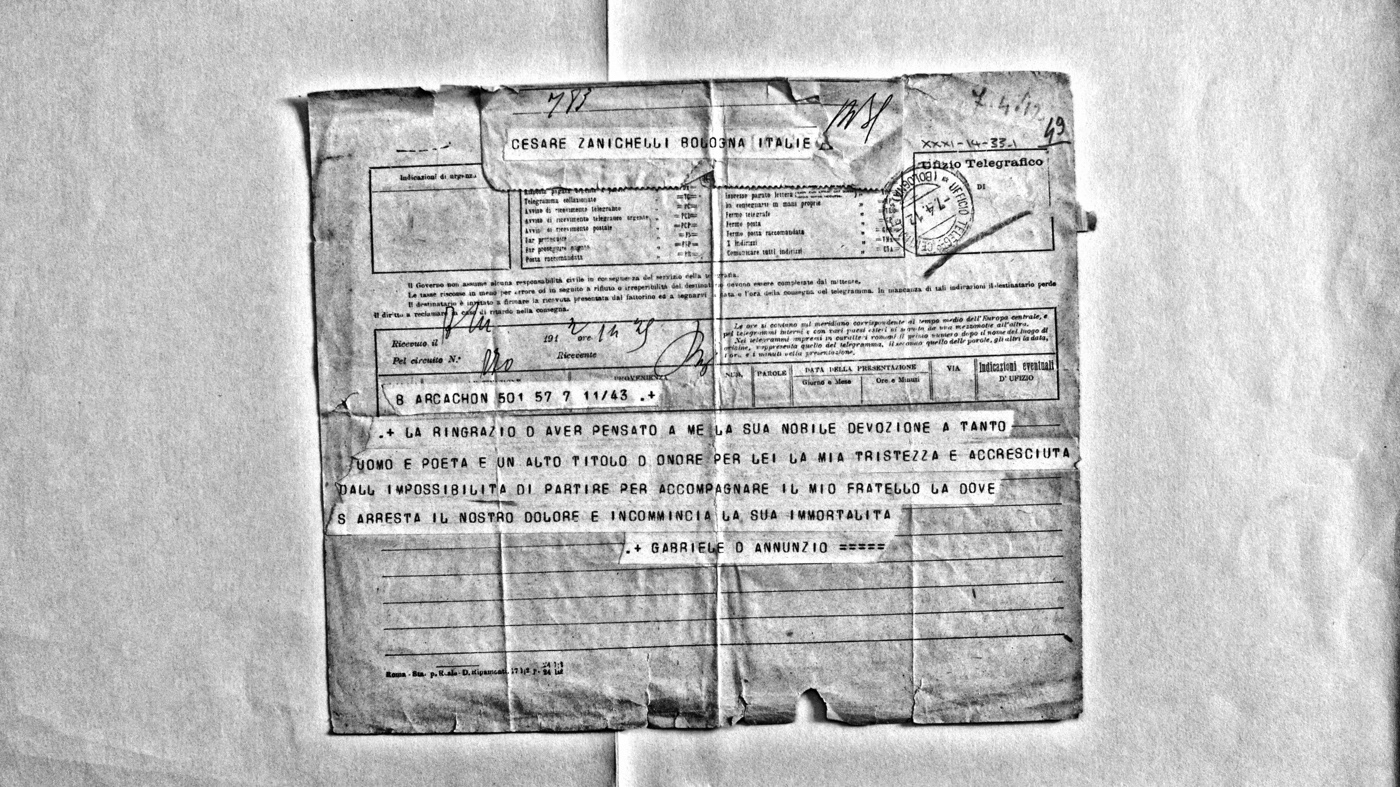 783
7.4.12
49
CESARE ZANICHELLI BOLOGNA ITALIE
XXXI-14-33.1
Indicazioni di urgenza
Ufizio Telegrafico
DI
Telegramma collazionato =TC=
Avviso di ricevimento telegrafico =PC=
Avviso di ricevimento telegrafico urgente =PCD=
Avviso di ricevimento postale =PCP=
Far proseguire =FS=
Far proseguire urgente =FSP=
Posta raccomandata =PR=
Interesse pagato lettere
da consegnarsi in mani proprie
Fermo telegrafo
Fermo posta
Fermo posta raccomandata
X indirizzi
Comunicare tutti indirizzi
UFFICIO TELEG CENTRALE (BOLOGNA)
-7.4.12
Il Governo non assume alcuna responsabilità civile in conseguenza del servizio della telegrafia.
Le tasse riscosse in meno per errore od in seguito a rifiuto o irreperibilità del destinatario devono essere completate dal mittente.
Il destinatario è invitato a firmare la ricevuta presentata dal fattorino ed a segnarvi la data e l'ora della consegna del telegramma. In mancanza di tali indicazioni il destinatario perde
il diritto a reclamare in caso di ritardo nella consegna.
Ricevuto il 191 2 ore 14 25
Pel circuito N.° Ricevente
Le ore si contano sul meridiano corrispondente al tempo medio dell'Europa centrale, e
pei telegrammi interni e con vari paesi esteri si segnita da una mezzanotte all'altra.
Nei telegrammi impressi in caratteri romani il primo numero dopo il nome del luogo di
origine, rappresenta quello del telegramma, il secondo quello delle parole, gli altri la data,
l'ora e i minuti della presentazione.
PROVENIENZA NUM. PAROLE DATA DELLA PRESENTAZIONE VIA Indicazioni eventuali
Giorno e Mese Ore e Minuti D'UFIZIO
B ARCACHON 501 57 7 11/43 .+
.+ LA RINGRAZIO D AVER PENSATO A ME LA SUA NOBILE DEVOZIONE A TANTO
UOMO E POETA E UN ALTO TITOLO D ONORE PER LEI LA MIA TRISTEZZA E ACCRESCIUTA
DALL IMPOSSIBILITA DI PARTIRE PER ACCOMPAGNARE IL MIO FRATELLO LA DOVE
S ARRESTA IL NOSTRO DOLORE E INCOMMINCIA LA SUA IMMORTALITA
.+ GABRIELE D ANNUNZIO =====
Roma - Sta. p. Reale D. Ripamonti